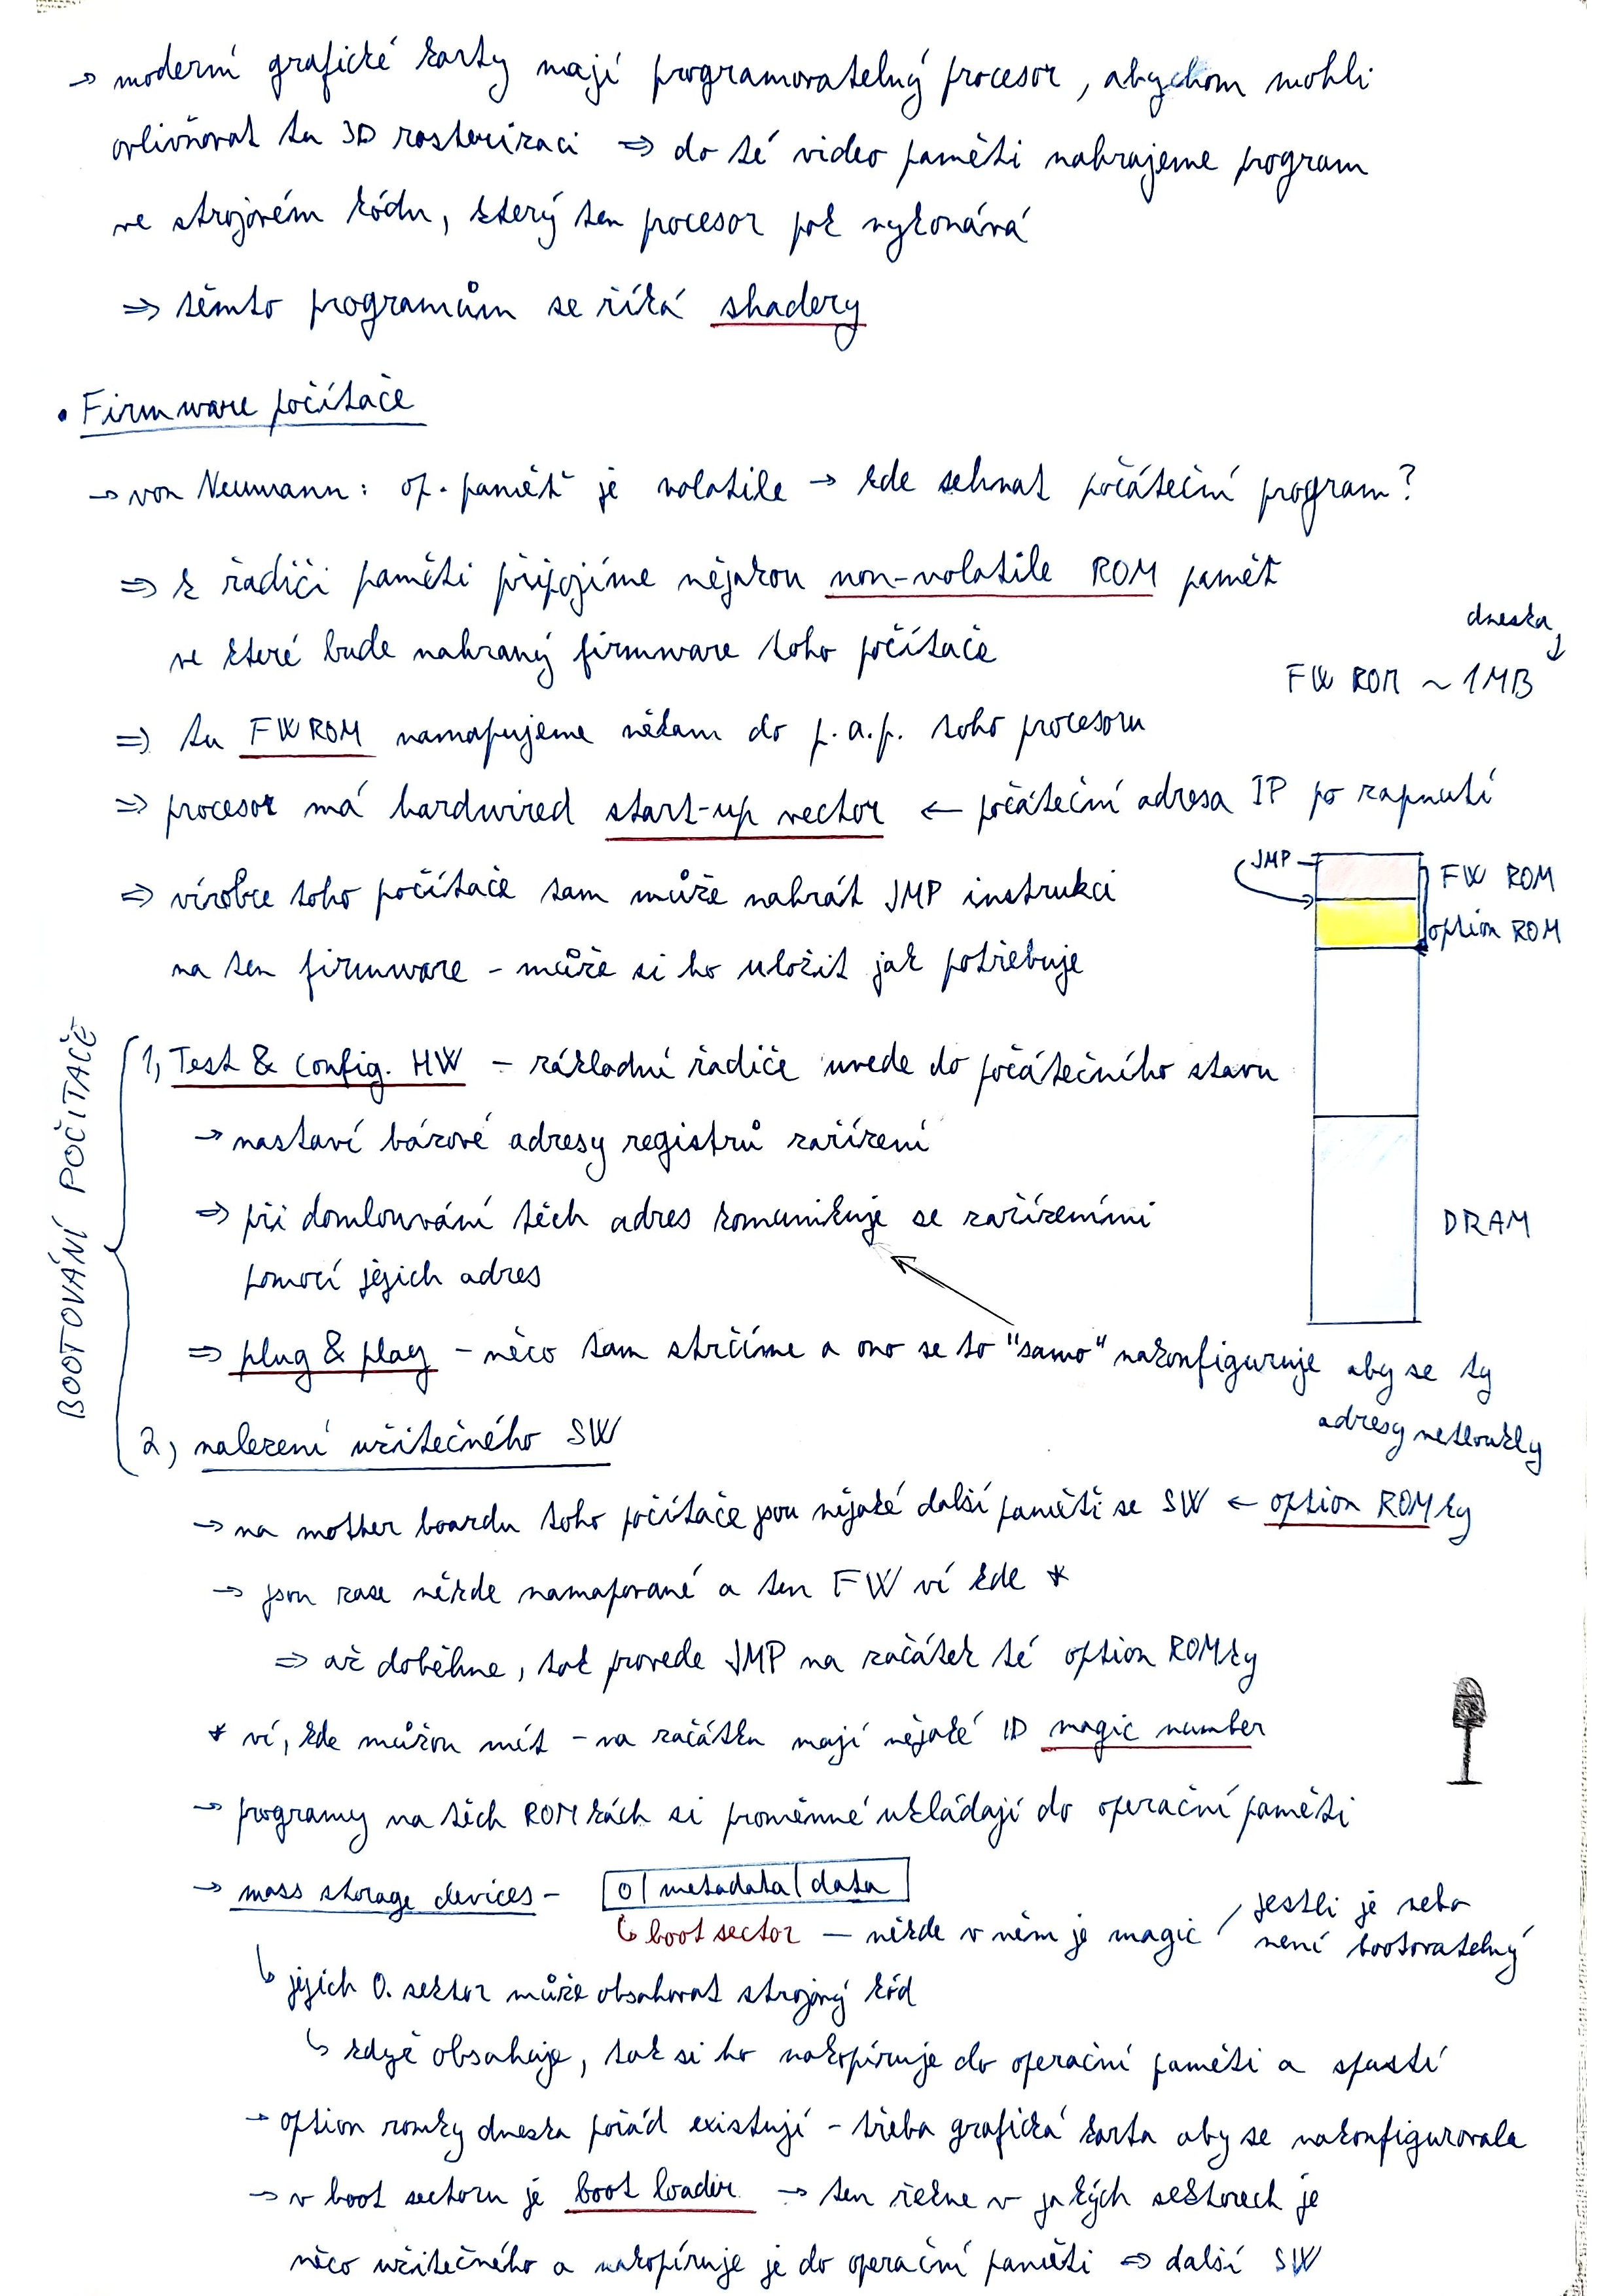 → moderní grafické karty mají programovatelný procesor, abychom mohli
ovlivňovat tu 3D rasterizaci ⇒ do té video paměti nahrajeme program
ve strojovém kódu, který ten procesor pak vykonává
⇒ těmto programům se říká shadery
• Firmware počítače
→ von Neumann: op. paměť je volatile → kde sehnat počáteční program?
⇒ k řadiči paměti připojíme nějakou non-volatile ROM paměť
ve které bude nahraný firmware toho počítače
dneska ↓
FW ROM ~ 1MB
⇒ tu FW ROM namapujeme někam do p.a.p. toho procesoru
⇒ procesor má hardwired start-up vector ← počáteční adresa IP po zapnutí
⇒ výrobce toho počítače tam může nahrát JMP instrukci
na ten firmware - může si ho uložit jak potřebuje
JMP
FW ROM
option ROM
DRAM
BOOTOVÁNÍ POČÍTAČE
1, Test & Config. HW - základní řadiče uvede do počátečního stavu
→ nastaví bázové adresy registrů zařízení
⇒ při domlouvání těch adres komunikuje se zařízeními
pomocí jejich adres
⇒ plug & play - něco tam strčíme a ono se to "samo" nakonfiguruje aby se ty
adresy netloukly
2, nalezení užitečného SW
→ na mother boardu toho počítače jsou nějaké další paměti se SW ← option ROMky
→ jsou zase někde namapované a ten FW ví kde *
⇒ až doběhne, tak provede JMP na začátek té option ROMky
* ví, kde můžou být - na začátku mají nějaké ID magic number
→ programy na těch ROMkách si proměnné ukládají do operační paměti
→ mass storage devices - 0 | metadata | data
↳ boot sector — někde v něm je magic / jestli je nebo
není bootovatelný
↳ jejich 0. sektor může obsahovat strojový kód
↳ když obsahuje, tak si ho nakopíruje do operační paměti a spustí
→ option romky dneska pořád existují - třeba grafická karta aby se nakonfigurovala
→ v boot sectoru je boot loader → ten řekne v jakých sektorech je
něco užitečného a nakopíruje je do operační paměti ⇒ další SW